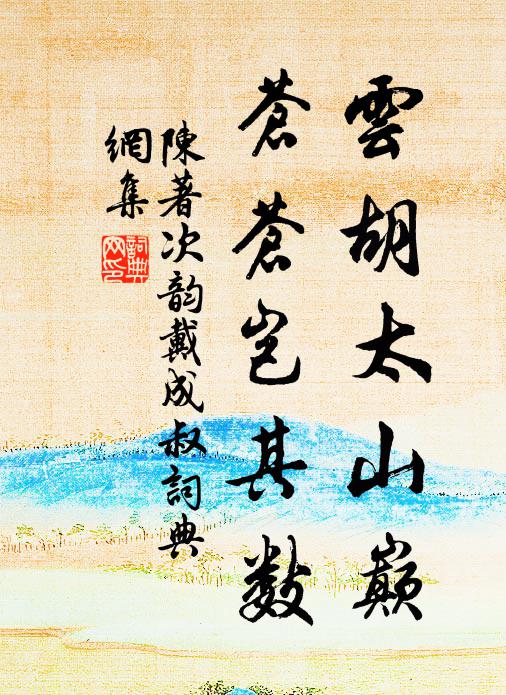 雲胡太山巔
蒼蒼豈其數
陳著次韵戴成叔詞典
網集
詞典
网印